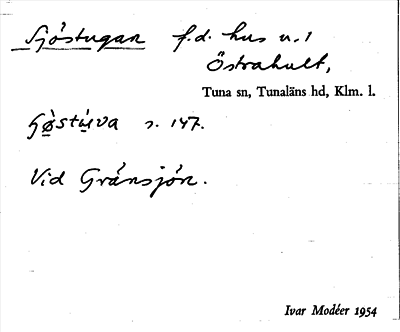 Sjöstugan f.d. hus u. 1
Östrahult,
Tuna sn, Tunaläns hd, Klm. l.
s. 147.
Vid Gränsjön.
Ivar Modéer 1954